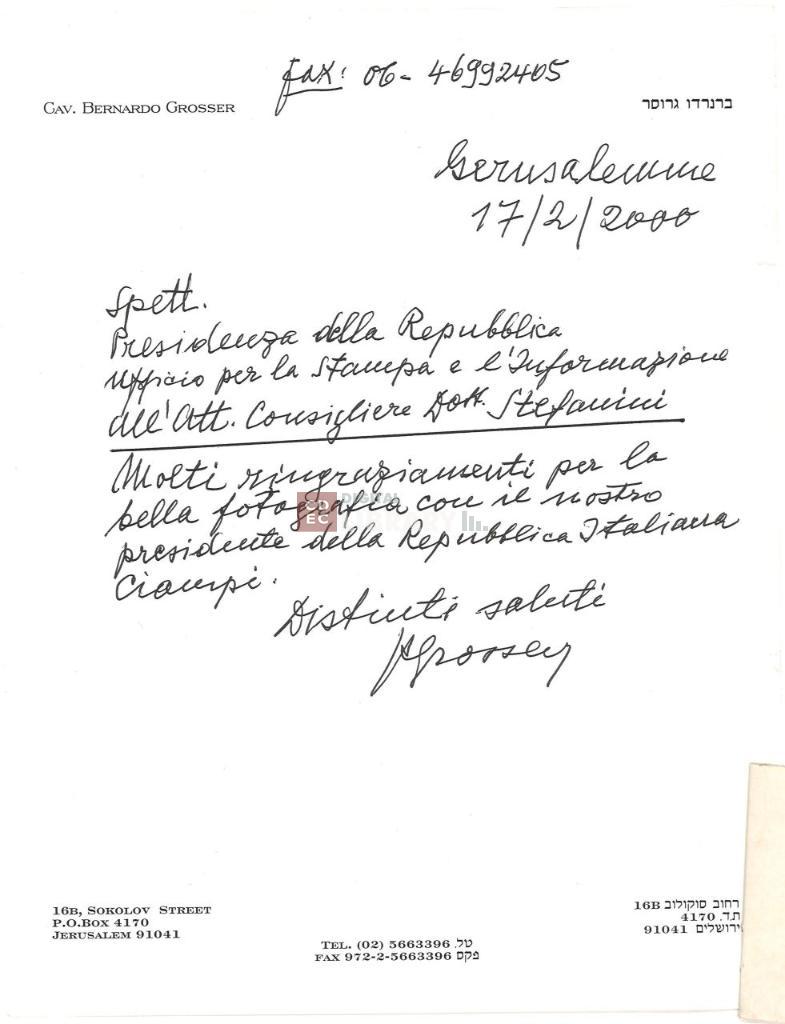 fax: 06-46992405
CAV. BERNARDO GROSSER
ברנרדו גרוסר
Gerusalemme
17/2/2000
Spett.
Presidenza della Repubblica
Ufficio per la Stampa e l'Informazione
all'Att. Consigliere Dott. Stefanini
Molti ringraziamenti per la
bella fotografia con il nostro
presidente della Repubblica Italiana
Ciampi.
Distinti saluti
BGrosser
CDEC DIGITAL LIBRARY
16B, SOKOLOV STREET
P.O.BOX 4170
JERUSALEM 91041
רחוב סוקולוב 16B
ת.ד. 4170
ירושלים 91041
TEL. (02) 5663396 טל.
FAX 972-2-5663396 פקס